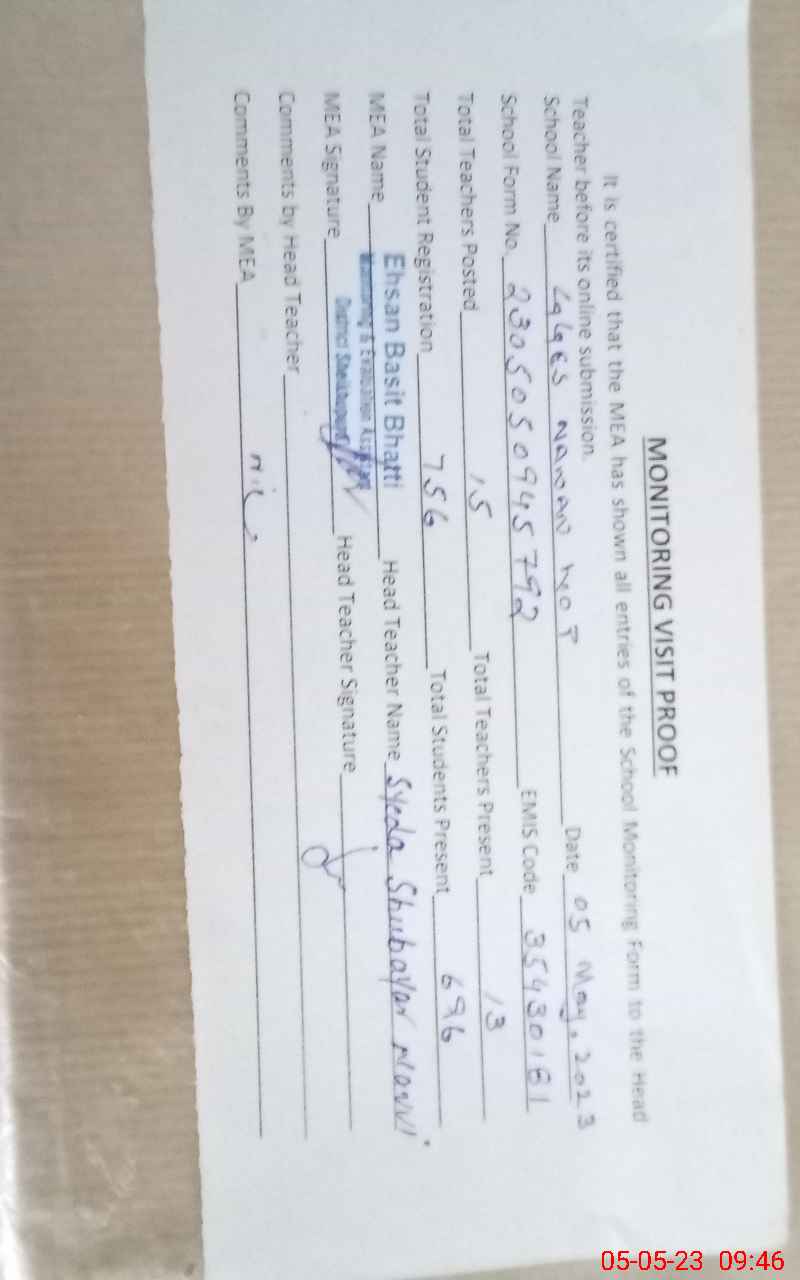 MONITORING VISIT PROOF
It is certified that the MEA has shown all entries of the School Monitoring Form to the Head
Teacher before its online submission.
School Name Date 05 May, 2023
School Form No. 2305050945792 EMIS Code 35430181
Total Teachers Posted 15 Total Teachers Present 13
Total Student Registration 756 Total Students Present 696
MEA Name Ehsan Basit Bhatti Head Teacher Name Syeda
Monitoring & Evaluation Assistant
District Sheikhupura
MEA Signature Head Teacher Signature
Comments by Head Teacher
Comments By MEA nil
05-05-23 09:46